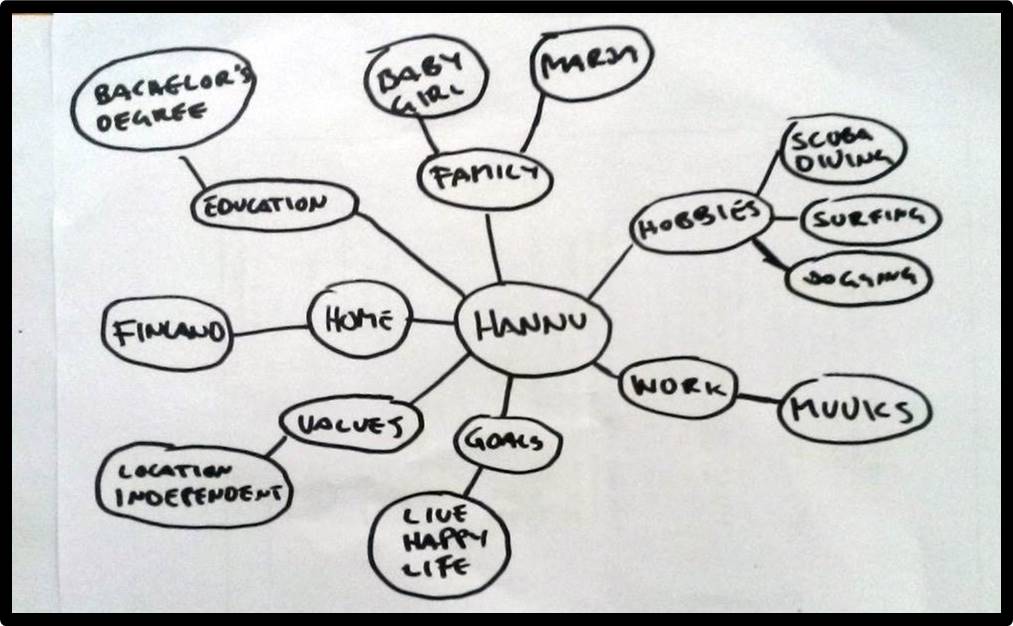 BACHELOR'S
DEGREE
BABY
GIRL
MARJA
SCUBA
DIVING
FAMILY
EDUCATION
HOBBIES
SURFING
JOGGING
FINLAND
HOME
HANNU
WORK
MUUKS
VALUES
GOALS
LOCATION
INDEPENDENT
LIVE
HAPPY
LIFE